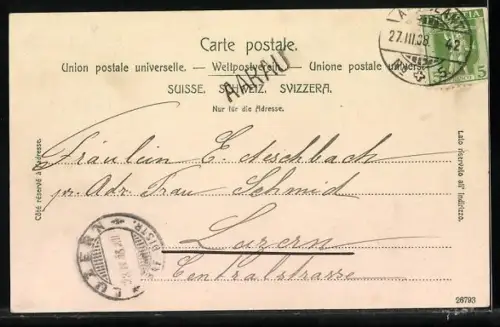 Carte postale.
Union postale universelle. — Weltpostverein. — Unione postale universale.
SUISSE. SCHWEIZ. SVIZZERA.
Nur für die Adresse.
AARAU
27.III.08.
5
Côté réservé à l'adresse.
Lato riservato all' indirizzo.
Fräulein E. Aeschbach
pr. Adr. Frau Schmid
Luzern
Centralstrasse
LUZERN
DISTR.
26793